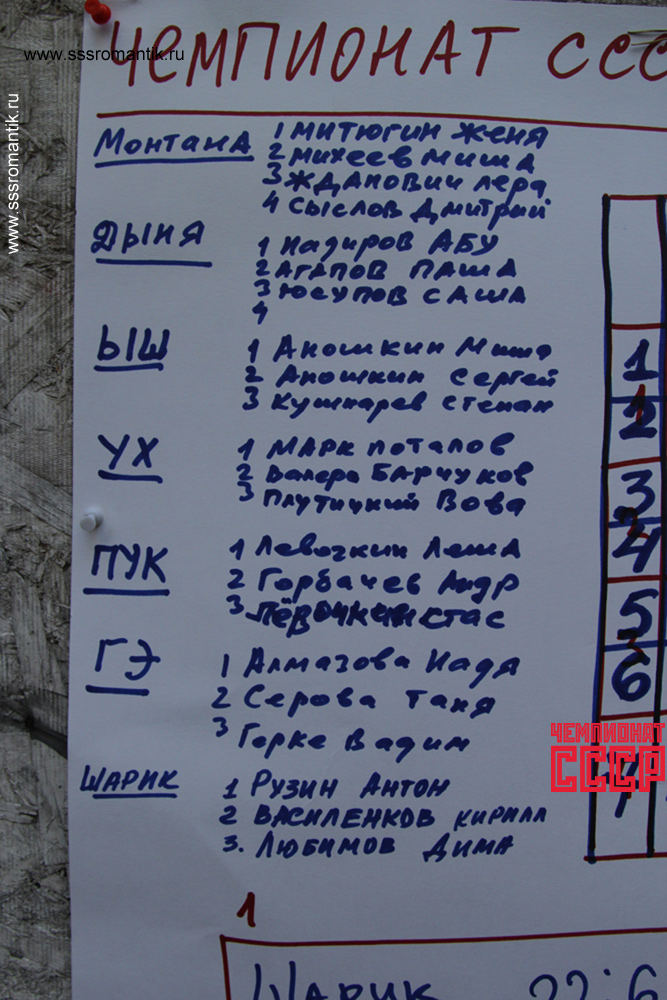 www.sssromantik.ru
www.sssromantik.ru
ЧЕМПИОНАТ ССС
МОНТАНА
1 МИТЮГИН ЖЕНЯ
2 МИХЕЕВ МИША
3 ЖДАНОВИЧ ЛЕРА
4 СЫСЛОВ ДМИТРИЙ
ДЫНЯ
1 НАДИРОВ АБУ
2 АГАПОВ ПАША
3 ЮСУПОВ САША
4
ЫШ
1 АНОШКИН МИША
2 АНОШКИН СЕРГЕЙ
3 КУШНАРЕВ СТЕПАН
УХ
1 МАРК ПОТАПОВ
2 ВАЛЕРА БАРЧУКОВ
3 ПЛУТИЦКИЙ ВОВА
ПУК
1 ЛЕВОЧКИН ЛЕША
2 ГОРБАЧЕВ АНДР
3 ЛЁВОЧКИН СТАС
ГЭ
1 АЛМАЗОВА НАДЯ
2 СЕРОВА ТАНЯ
3 ГЕРКЕ ВАДИМ
ШАРИК
1 РУЗИН АНТОН
2 ВАСИЛЕНКОВ КИРИЛЛ
3. ЛЮБИМОВ ДИМА
1
2
3
4
5
6
7
ЧЕМПИОНАТ
СССР
1
ШАРИК 22:6